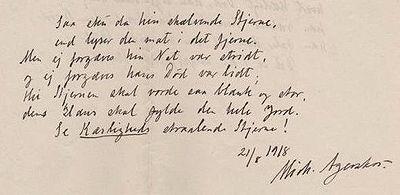 Saa sken da hin skælvende Stjerne,
end lyser den mat i det fjerne.
Men ej forgæves hin Nat var stridt,
og ej forgæves hans Død var lidt;
thi Stjernen skal vorde saa blank og stor,
dens Glans skal fylde den hele Jord.
Se Kærligheds straalende Stjerne!
21/8 1918
Mich. Agerskov.